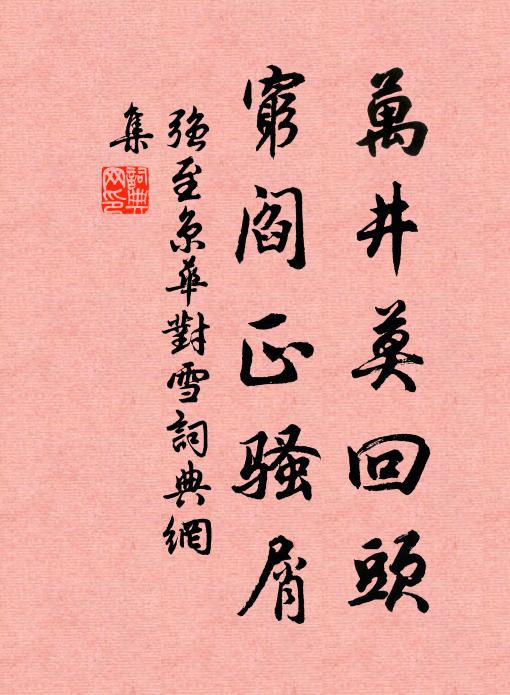 萬井莫回頭
窮閻正騷屑
強至京華對雪詞典網
集
詞典网印